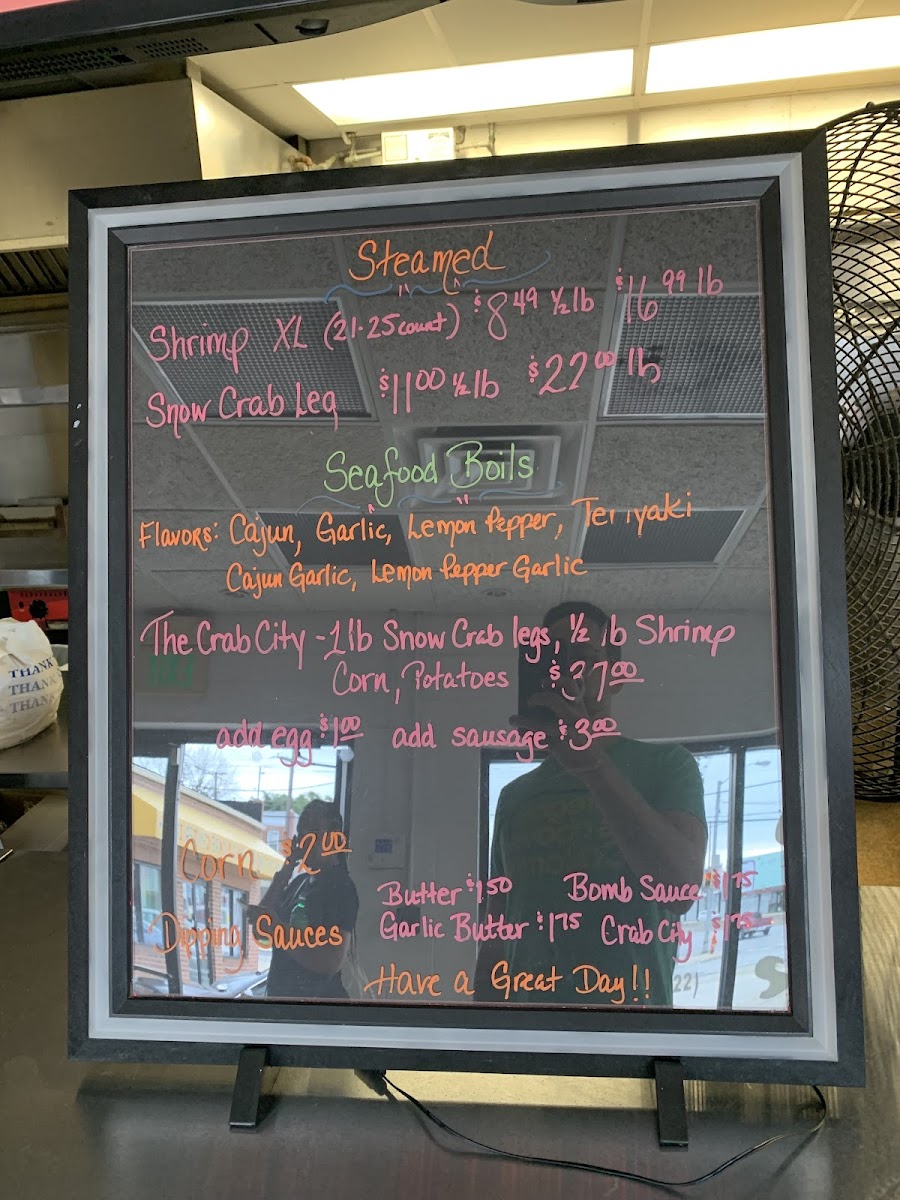 Steamed
Shrimp XL (21-25 count) $8.49 ½ lb $16.99 lb
Snow Crab Leg $11.00 ½ lb $22.00 lb
Seafood Boils
Flavors: Cajun, Garlic, Lemon Pepper, Teriyaki
Cajun Garlic, Lemon Pepper Garlic
The Crab City - 1 lb Snow Crab legs, ½ lb Shrimp
Corn, Potatoes $37.00
add egg $1.00 add sausage $3.00
Corn $2.00
Butter $1.50 Bomb Sauce $1.75
Dipping Sauces Garlic Butter $1.75 Crab City $1.75
Have a Great Day!!
THANK
THANK
THANK
22)